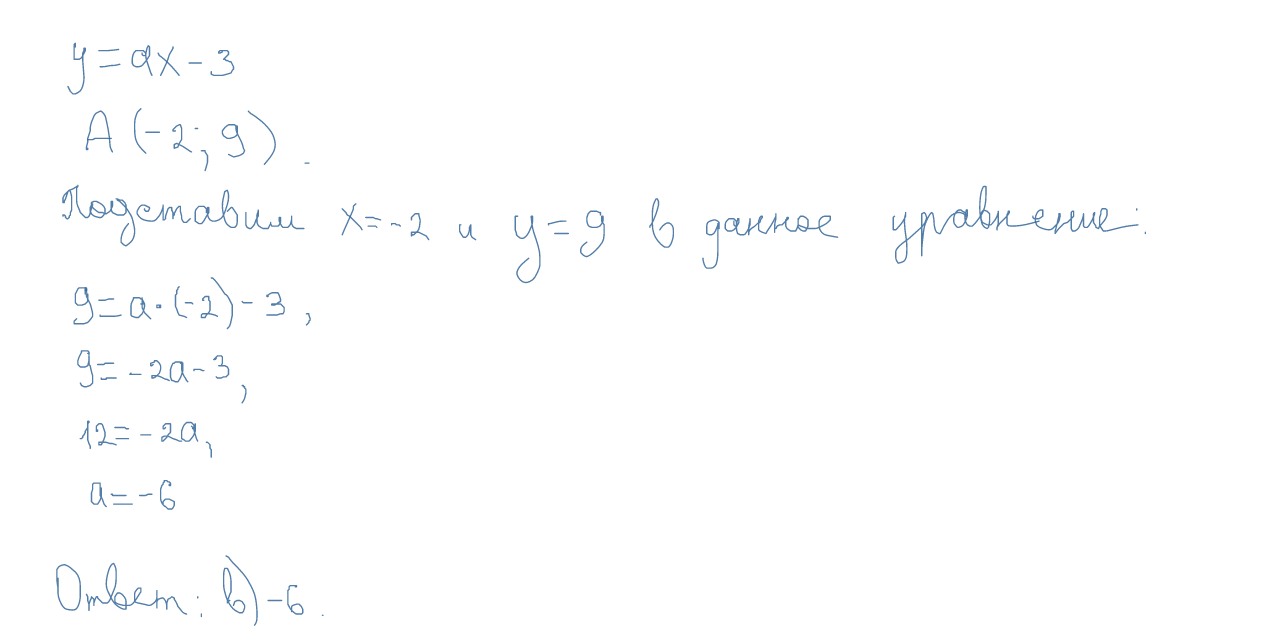 y=ax-3
A(-2; 9).
Подставим x=-2 и y=9 в данное уравнение:
9=a·(-2)-3,
9=-2a-3,
12=-2a,
a=-6
Ответ: в)-6.